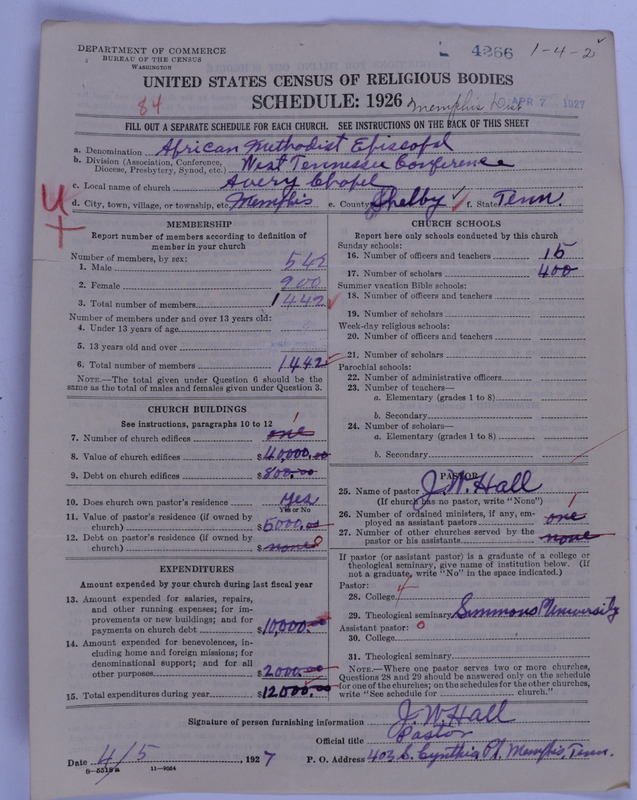 DEPARTMENT OF COMMERCE
BUREAU OF THE CENSUS
WASHINGTON
4266
1-4-2
UNITED STATES CENSUS OF RELIGIOUS BODIES
84
SCHEDULE: 1926
Memphis Dist
APR 7 1927
FILL OUT A SEPARATE SCHEDULE FOR EACH CHURCH. SEE INSTRUCTIONS ON THE BACK OF THIS SHEET
a. Denomination African Methodist Episcopal
b. Division (Association, Conference, Diocese, Presbytery, Synod, etc.) West Tennessee Conference
c. Local name of church Avery Chapel
d. City, town, village, or township, etc. Memphis e. County Shelby f. State Tenn.
MEMBERSHIP
Report number of members according to definition of
member in your church
Number of members, by sex:
1. Male 542
2. Female 900
3. Total number of members 1442
Number of members under and over 13 years old:
4. Under 13 years of age
5. 13 years old and over
6. Total number of members 1442
NOTE.—The total given under Question 6 should be the
same as the total of males and females given under Question 3.
CHURCH BUILDINGS
See instructions, paragraphs 10 to 12
7. Number of church edifices one 1
8. Value of church edifices $40,000.00
9. Debt on church edifices $800.00
10. Does church own pastor's residence yes
Yes or No
11. Value of pastor's residence (if owned by
church) $5000.00
12. Debt on pastor's residence (if owned by
church) $none 0
EXPENDITURES
Amount expended by your church during last fiscal year
13. Amount expended for salaries, repairs,
and other running expenses; for im-
provements or new buildings; and for
payments on church debt $10,000.00
14. Amount expended for benevolences, in-
cluding home and foreign missions; for
denominational support; and for all
other purposes $2000.00
15. Total expenditures during year $12000.00
CHURCH SCHOOLS
Report here only schools conducted by this church
Sunday schools:
16. Number of officers and teachers 15
17. Number of scholars 400
Summer vacation Bible schools:
18. Number of officers and teachers
19. Number of scholars
Week-day religious schools:
20. Number of officers and teachers
21. Number of scholars
Parochial schools:
22. Number of administrative officers
23. Number of teachers—
a. Elementary (grades 1 to 8)
b. Secondary
24. Number of scholars—
a. Elementary (grades 1 to 8)
b. Secondary
PASTOR
25. Name of pastor J. W. Hall
(If church has no pastor, write "None")
26. Number of ordained ministers, if any, em-
ployed as assistant pastors one 1
27. Number of other churches served by the
pastor or his assistants none
If pastor (or assistant pastor) is a graduate of a college or
theological seminary, give name of institution below. (If
not a graduate, write "No" in the space indicated.)
Pastor:
28. College
29. Theological seminary Simmons University
Assistant pastor: 0
30. College
31. Theological seminary
NOTE.—Where one pastor serves two or more churches,
Questions 28 and 29 should be answered only on the schedule
for one of the churches; on the schedules for the other churches,
write "See schedule for ________ church."
Signature of person furnishing information J. W. Hall
Official title Pastor
Date 4/5, 1927 P. O. Address 403 S. Cynthia Pl. Memphis, Tenn.
8-5518a 11-9054